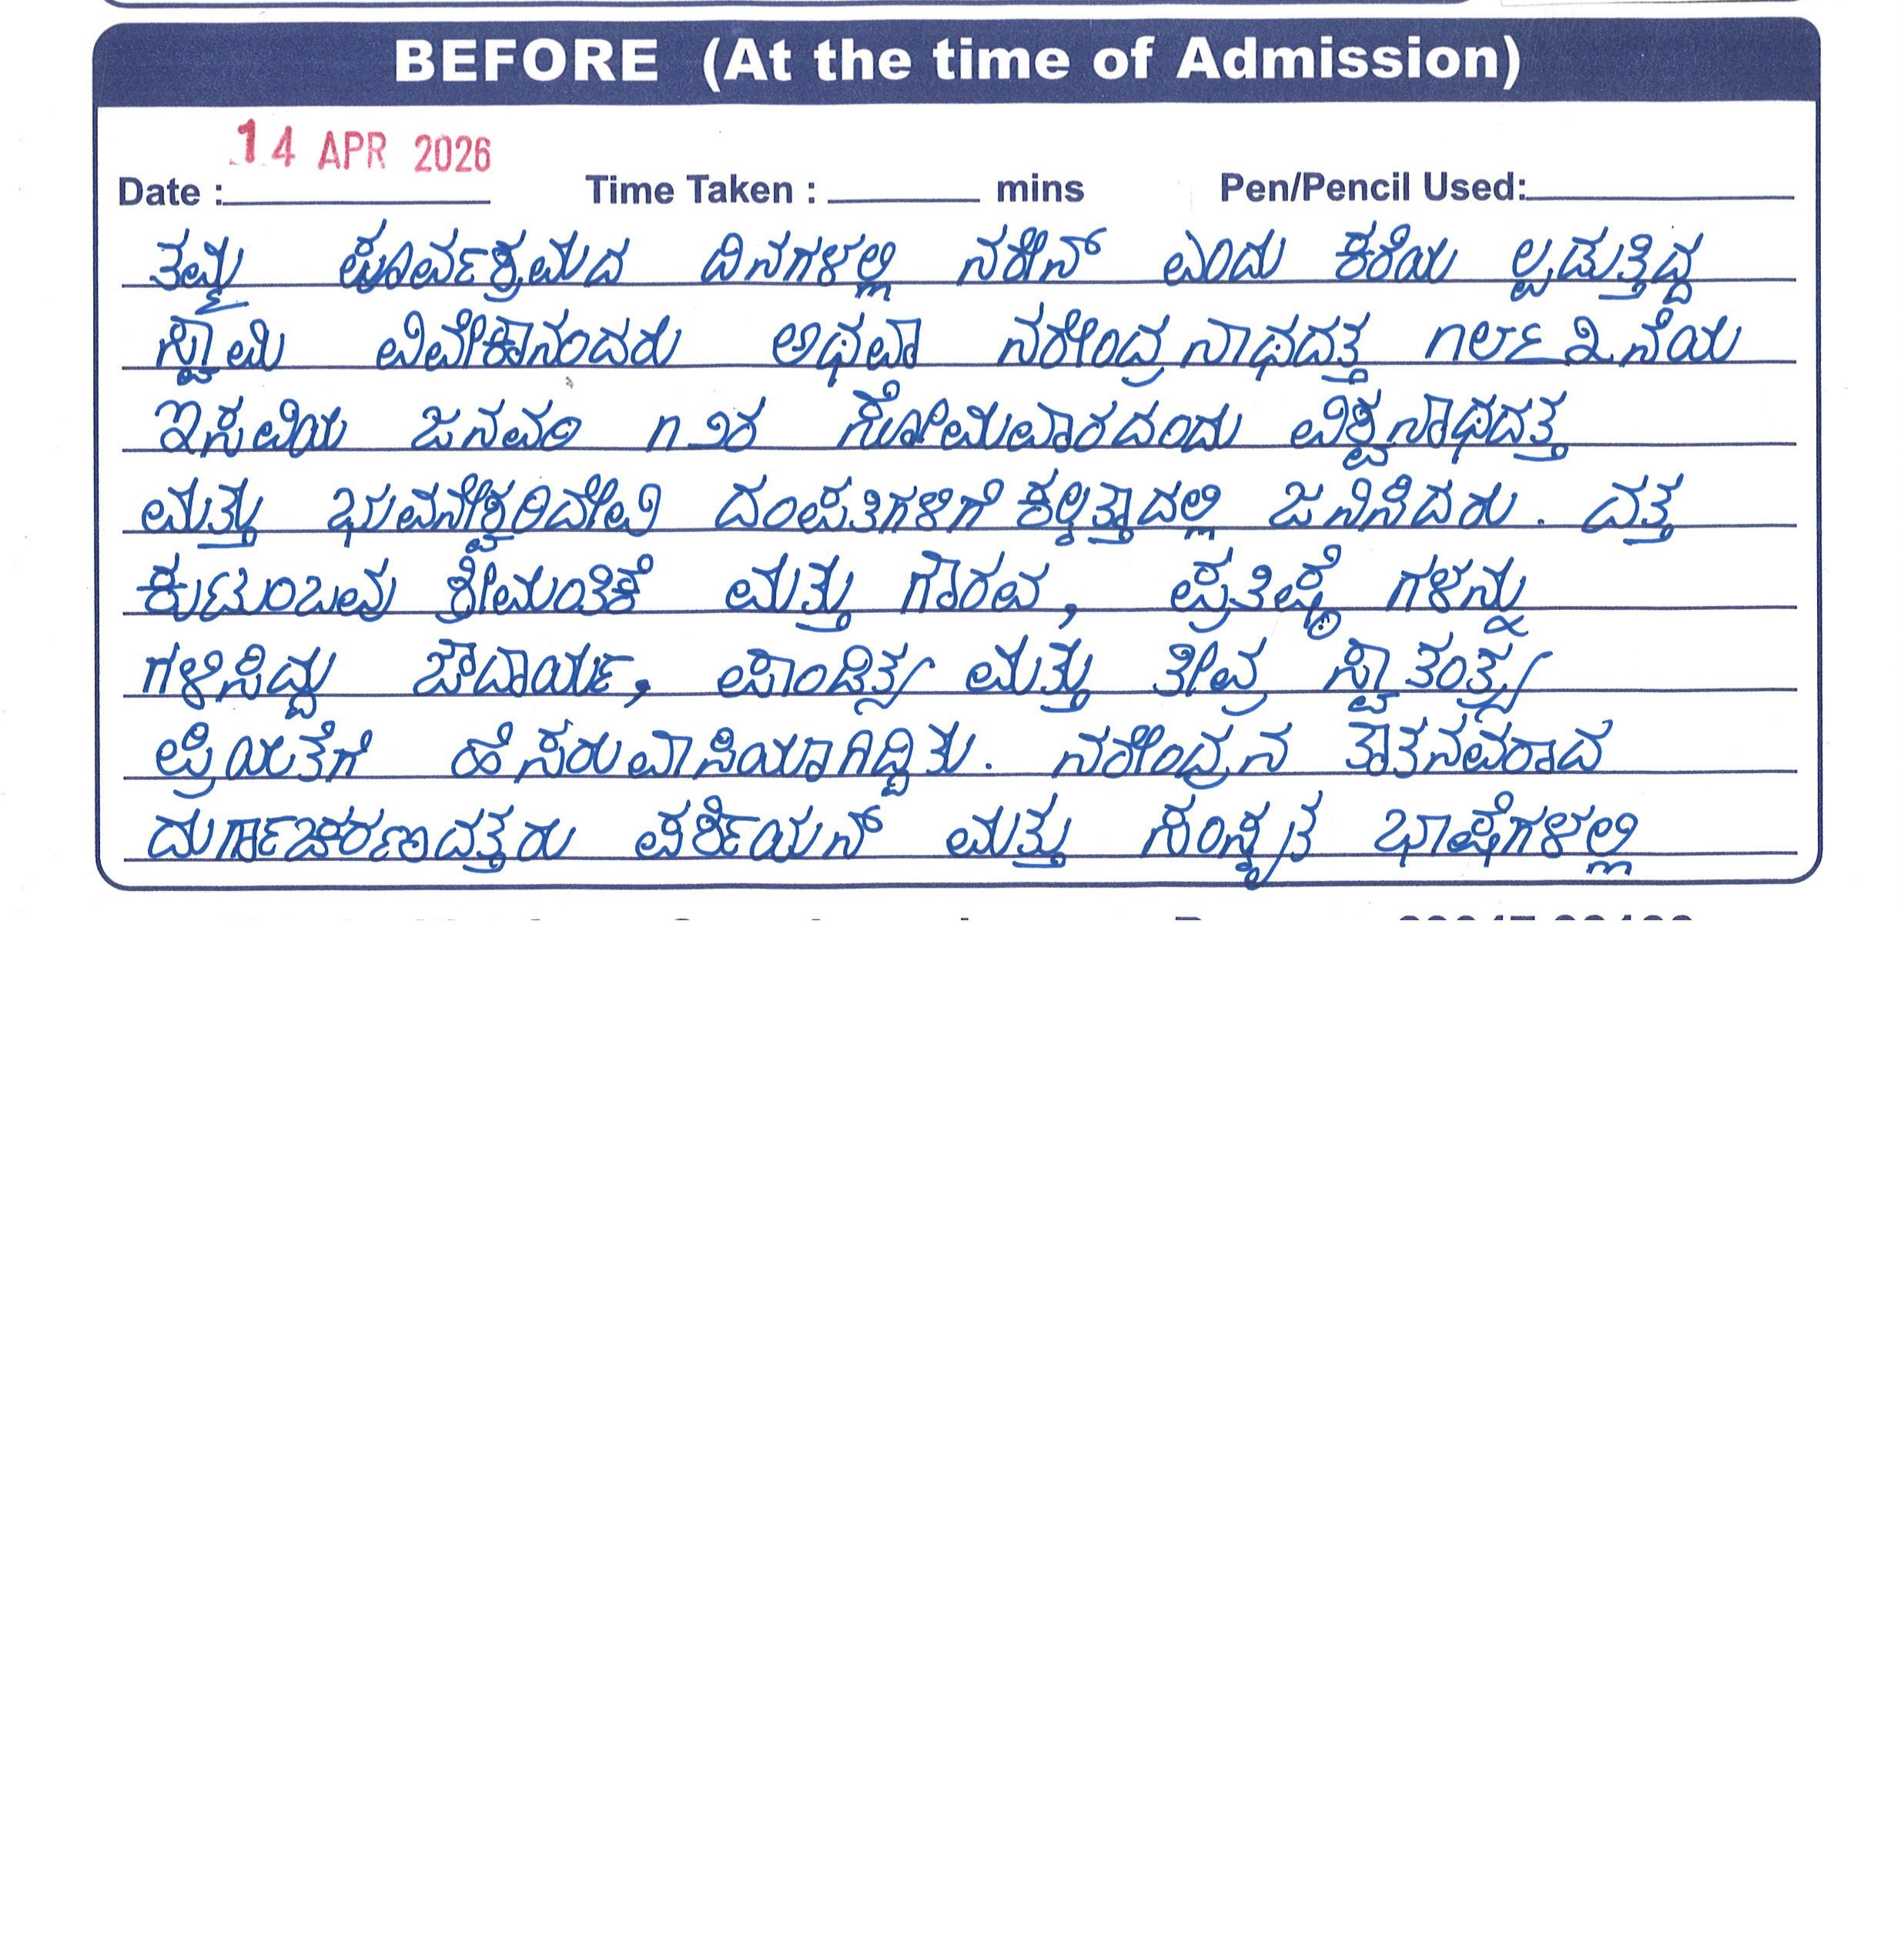 BEFORE (At the time of Admission)
14 APR 2026
Date : Time Taken : mins Pen/Pencil Used:
ತಮ್ಮ ಪೂರ್ವಶ್ರಮದ ದಿನಗಳಲ್ಲಿ ನರೇನ್ ಎಂದು ಕರೆಯ ಲ್ಪಡುತ್ತಿದ್ದ
ಸ್ವಾಮಿ ವಿವೇಕಾನಂದರು ಅಥವಾ ನರೇಂದ್ರ ನಾಥದತ್ತ ೧೮೬೩ ನೆಯ
ಇಸವಿಯ ಜನವರಿ ೧೨ರ ಸೋಮವಾರದಂದು ವಿಶ್ವನಾಥದತ್ತ
ಮತ್ತು ಭುವನೇಶ್ವರಿದೇವಿ ದಂಪತಿಗಳಿಗೆ ಕಲ್ಕತ್ತಾದಲ್ಲಿ ಜನಿಸಿದರು. ದತ್ತ
ಕುಟುಂಬವು ಶ್ರೀಮಂತಿಕೆ ಮತ್ತು ಗೌರವ, ಪ್ರತಿಷ್ಠೆ ಗಳನ್ನು
ಗಳಿಸಿದ್ದು ಔದಾರ್ಯ, ಪಾಂಡಿತ್ಯ ಮತ್ತು ತೀವ್ರ ಸ್ವಾತಂತ್ರ್ಯ
ಪ್ರಿಯತೆಗೆ ಹೆಸರುವಾಸಿಯಾಗಿದ್ದಿತು. ನರೇಂದ್ರನ ತಾತನವರಾದ
ದುರ್ಗಾಚರಣದತ್ತರು ಪರ್ಶಿಯನ್ ಮತ್ತು ಸಂಸ್ಕೃತ ಭಾಷೆಗಳಲ್ಲಿ